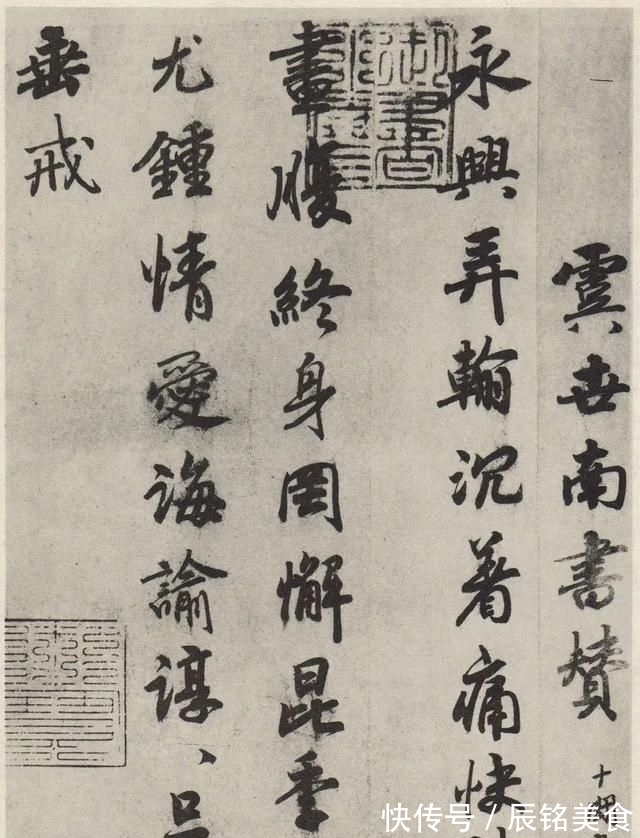 虞世南書贊 十
永興弄翰沉着痛快
畫腹終身罔懈昆季
尤鍾情愛誨諭諄、
垂戒
快传号 / 辰铭美食